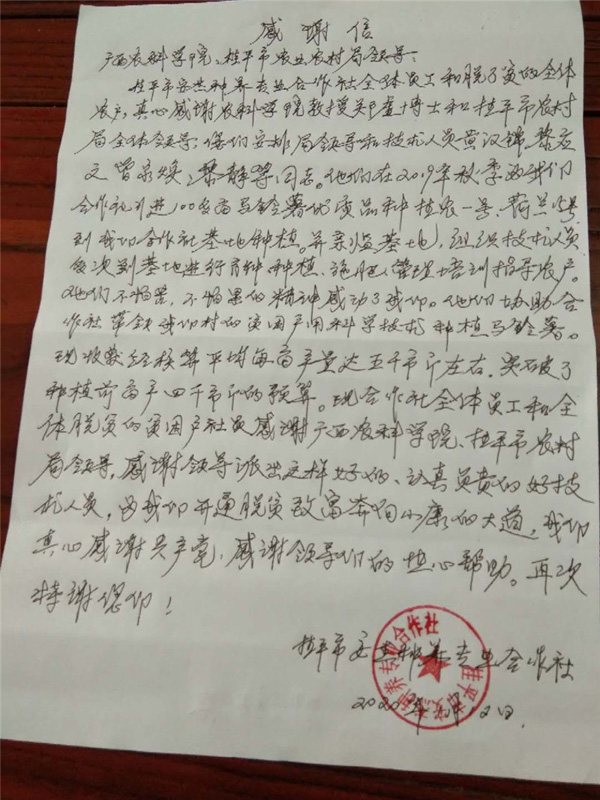 感谢信
广西农科学院、桂平市农业农村局领导：
桂平市安 种养专业合作社全体员工和脱了贫的全体
农户，真心感谢农科学院教授 博士和桂平市农村
局全体领导：你们安排局领导和技术人员黄汉锦、黎应
文、曾泉焕、黎静等同志。他们在2019年秋季为我们
合作社引进100多亩马铃薯优质品种桂农一号、荷兰 号
到我们合作社基地种植。并亲临基地，组织技术人员
多次到基地进行育种、种植、施肥、管理培训指导农户。
他们不怕苦，不怕累的精神感动了我们。他们协助合
作社带领我们村的贫困户用科学技术种植马铃薯。
现收获经核算平均每亩产量达五千市斤左右，突破了
种植前亩产四千市斤的预算。现合作社全体员工和全
体脱贫的贫困户社员感谢广西农科学院、桂平市农村
局领导，感谢领导派出这样好的、认真负责的好技
术人员，为我们开通脱贫致富奔向小康的大道，我们
真心感谢共产党，感谢领导们的热心帮助。再次
特谢您们！
桂平市安 种养专业合作社
2020年 月12日